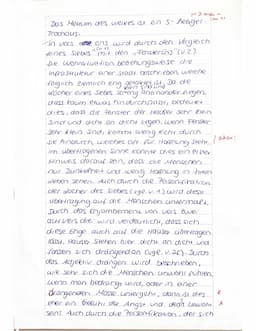 Das Metrum des Werkes ist ein 5-hebiger
Trochäus.
In Vers eins wird durch den Vergleich
eines Siebes mit den "Fenster[n]" (V.2)
die Wohnsituation beziehungsweise die
Infrastruktur einer Stadt beschrieben, welche
ziemlich eng ist. Da die
Löcher eines Siebes so eng aneinander liegen,
dass kaum etwas hindurchpasst, bedeutet
dies, dass die Fenster der Häuser sehr klein
sind und dicht an dicht liegen. Wenn Fenster
sehr klein sind, kommt wenig Licht durch
sie hindurch, welches oft für Hoffnung steht.
Im übertragenen Sinne könnte dies ein
Hinweis darauf sein, dass die Menschen
nur Dunkelheit und wenig Hoffnung in ihren
Leben sehen. Auch durch die Personifikation
der Löcher des Siebes (vgl. V.1) wird diese
Übertragung auf die Menschen untermalt.
Durch das Enjambement von Vers zwei
auf Vers drei wird verdeutlicht, dass sich
diese Enge auch auf die Häuser übertragen
lässt. Häuser stehen hier dicht an dicht und
fassen sich drängend an (vgl. V.2f.). Durch
das Adjektiv drängend wird beschrieben,
wie sehr sich die Menschen unwohl fühlen,
wenn man bedrängt wird, oder in einer
drängenden Masse untergeht, dann ist dies
eher ein Gefühl der Angst und des Unwohl
seins. Auch durch die Personifikation, der sich